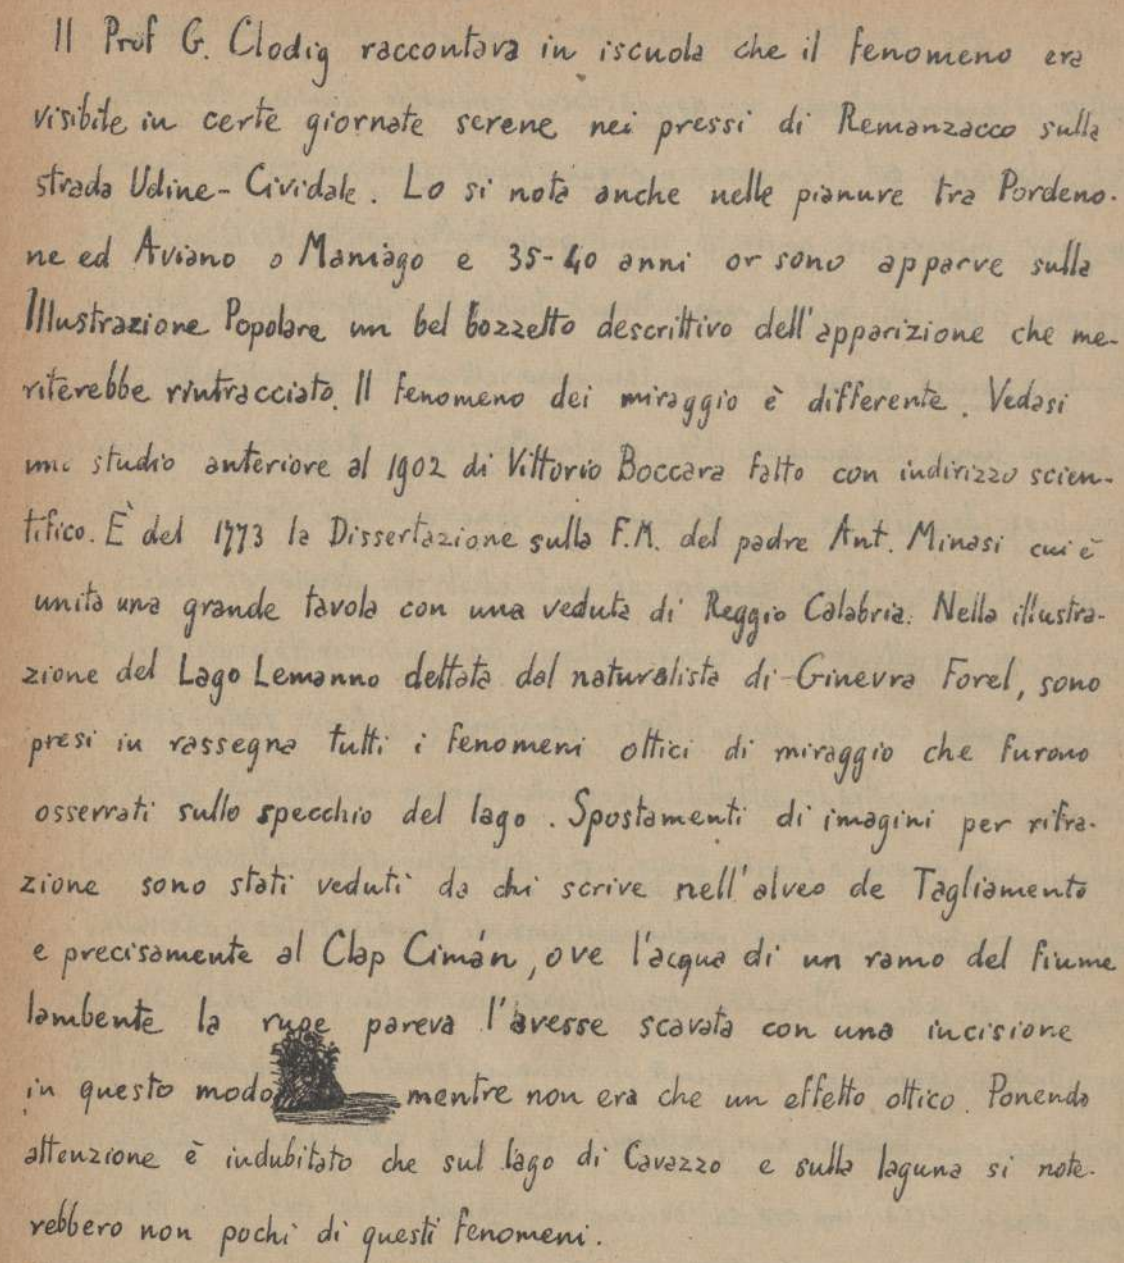 Il Prof G. Clodig raccontava in iscuola che il fenomeno era
visibile in certe giornate serene nei pressi di Remanzacco sulla
strada Udine-Cividale. Lo si nota anche nelle pianure tra Pordeno-
ne ed Aviano o Maniago e 35-40 anni or sono apparve sulla
Illustrazione Popolare un bel bozzetto descrittivo dell'apparizione che me-
riterebbe rintracciato. Il fenomeno dei miraggio è differente. Vedasi
uno studio anteriore al 1902 di Vittorio Boccara fatto con indirizzo scien-
tifico. È del 1773 la Dissertazione sulla F.M. del padre Ant. Minasi cui è
unita una grande tavola con una veduta di Reggio Calabria. Nella illustra-
zione del Lago Lemanno dettata dal naturalista di Ginevra Forel, sono
presi in rassegna tutti i fenomeni ottici di miraggio che furono
osservati sullo specchio del lago. Spostamenti di imagini per rifra-
zione sono stati veduti da chi scrive nell'alveo de Tagliamento
e precisamente al Clap Cimán, ove l'acqua di un ramo del fiume
lambente la rupe pareva l'avesse scavata con una incisione
in questo modo mentre non era che un effetto ottico. Ponendo
attenzione è indubitato che sul lago di Cavazzo e sulla laguna si note-
rebbero non pochi di questi fenomeni.